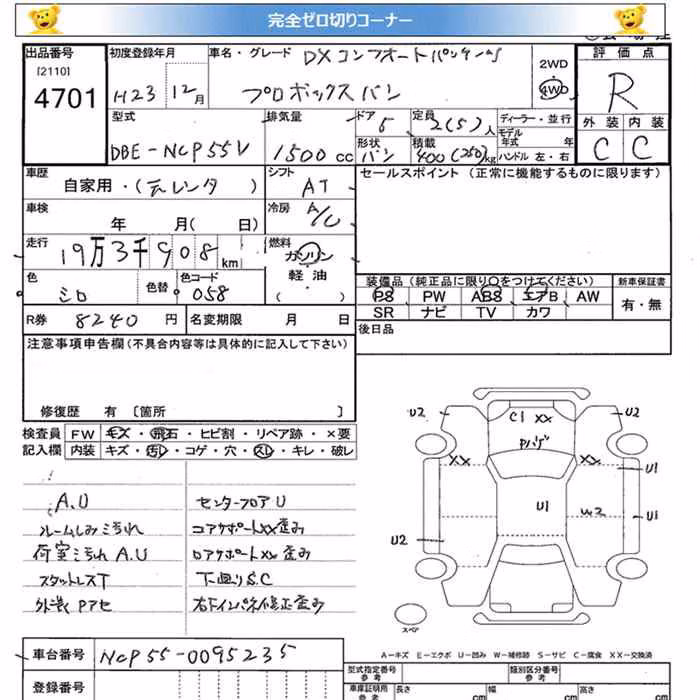 完全ゼロ切りコーナー
出品番号
[2110]
4701
初度登録年月
H23 12月
車名・グレード DXコンフォートパッケージ
プロボックスバン
2WD
4WD
評価点
R
外装 内装
C C
型式
DBE-NCP55V
排気量
1500 cc
ドア
5
形状
バン
定員
2(5)人
積載
400(250)kg
ディーラー・並行
モデル
年式 年
ハンドル 左・右
車歴
自家用・(元レンタ )
シフト
AT
セールスポイント (正常に機能するものに限ります)
車検
年 月( 日)
冷房
A/C
走行
19万3千908 km
燃料
ガソリン
軽油
( ・ )
色
シロ
色替
色コード
058
装備品(純正品に限り○をつけてください)
PS PW ABS エアB AW
SR ナビ TV カワ
新車保証書
有・無
R券 8240 円
名変期限 月 日
後日品
注意事項申告欄(不具合内容等は具体的に記入して下さい)
修復歴 有 〔箇所 〕
検査員 FW キズ・飛石・ヒビ割・リペア跡・×要
記入欄 内装 キズ・汚レ・コゲ・穴・スレ・キレ・破レ
A.U
ルームしみ汚れ
荷室汚れ A.U
スタットレスT
外装 Pアセ
センターフロアU
コアサポートXX歪み
ロアサポートXX歪み
下回りS.C
右Fインパネ修正歪み
U2
C1 XX
U2
Pハゲ
XX
XX
U1
U1
W2
U1
U2
スペア
A−キズ E−エクボ U−凹み W−補修跡 S−サビ C−腐食 XX−交換済
車台番号 NCP55-0095235
登録番号
型式指定番号
参考
類別区分番号
参考
車庫証明用
参考
長さ cm
幅 cm
高さ cm